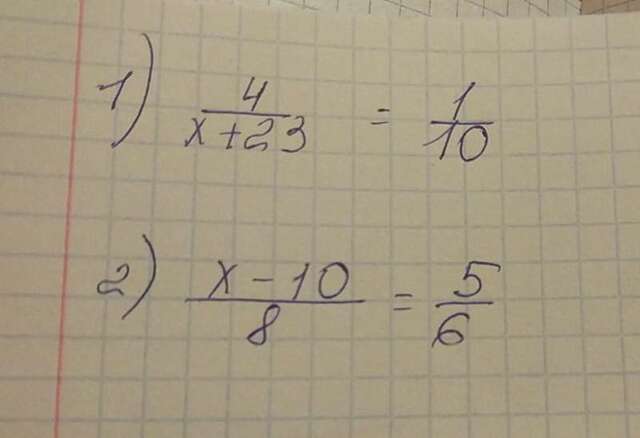 1) 4/(x+23) = 1/10
2) (x-10)/8 = 5/6